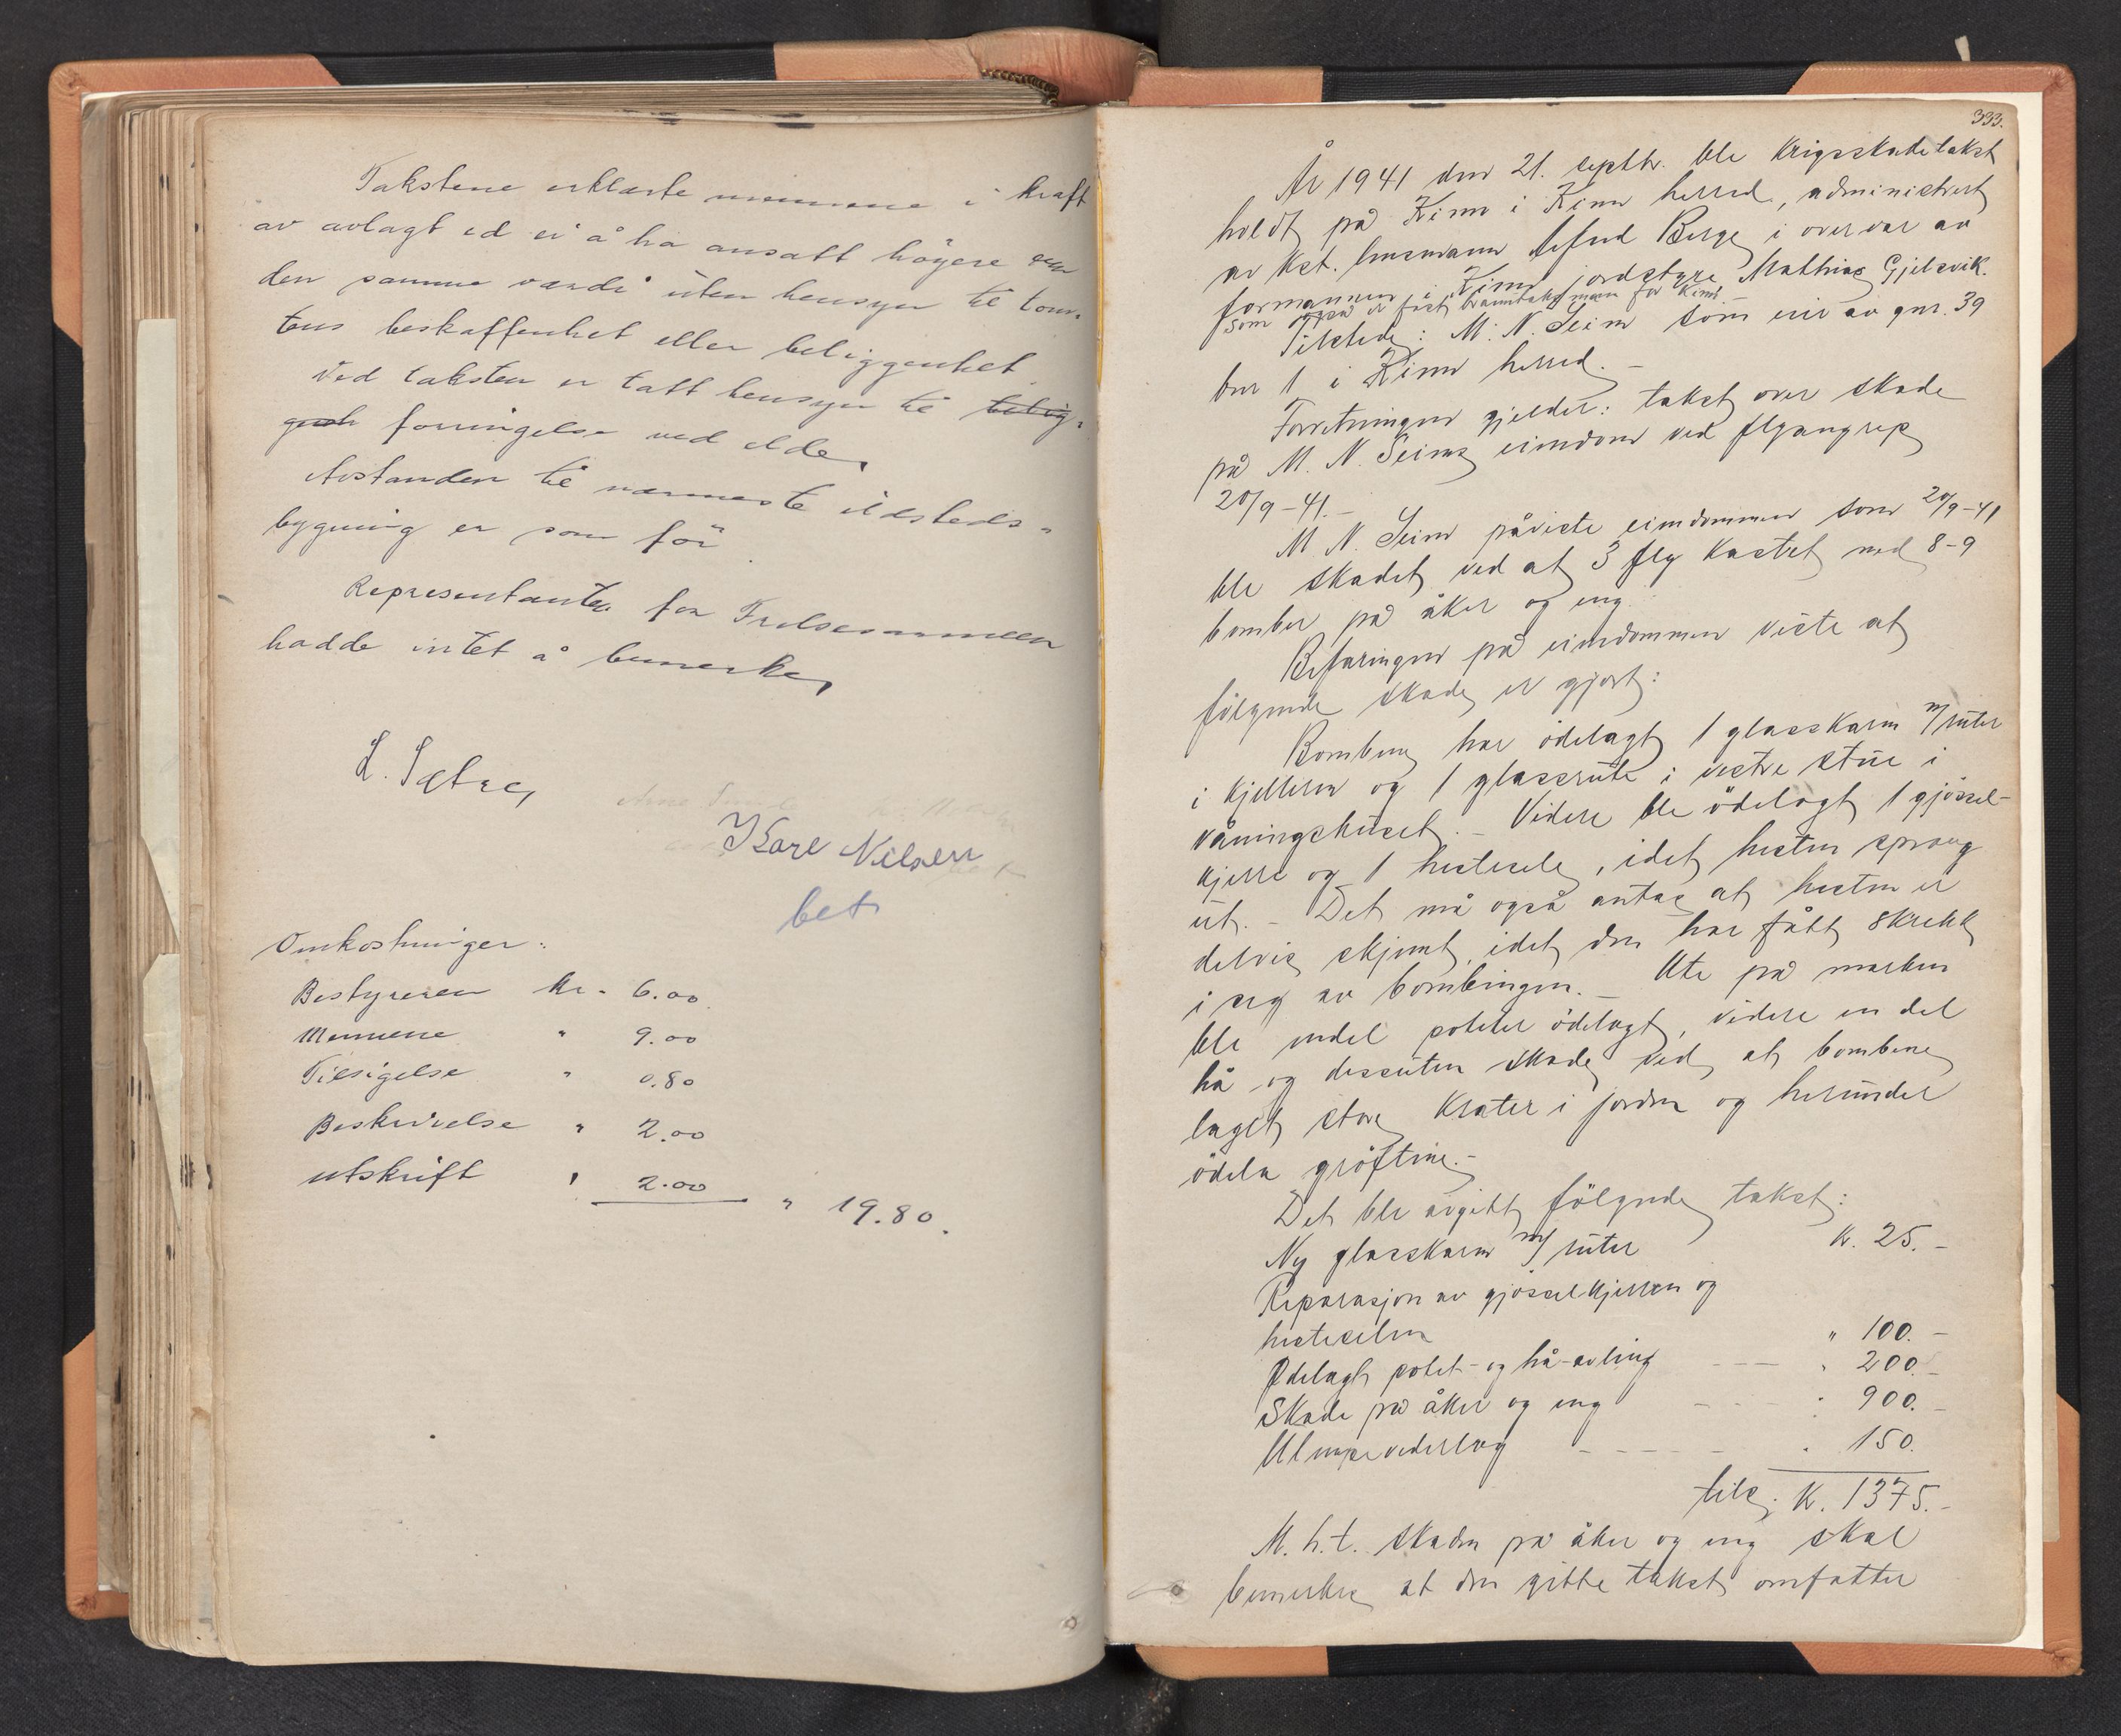 Takstene erklærte mennene i kraft
av avlagt ed ei å ha ansatt høgere enn
den samme værdi uten hensyn til tom-
tens beskaffenhet eller beliggenhet.
Ved taksten er tatt hensyn til belig-
genh forringelse ved elde,
Avstanden til nærmeste ildsteds-
bygning er som før
Representanten for Trelsesarmeen
hadde intet å bemerke,
L. Sætre,
Kåre Nilsen
bet
Omkostninger:
Bestyreren kr. 6.00
Mennene " 9.00
Tilsigelse " 0.80
Beskrivelse " 2.00
utskrift " 2.00 " 19.80.
333.
År 1941 den 21. septbr. ble krigsskadetakst
holdt på Kinn i Kinn herred, administrert
av kst. lensmann Berge i overvær av
formannen i Kinn jordstyre Mathias Gjelsvik.
som også er fast branntakstmann for Kinn
Tilstede: M. N. Seim som eier av gnr. 39
bnr 1 i Kinn herred. -
Forretningen gjelder: takst over skade
på M. N. Seims eiendom ved flyangrep
20/9-41. -
M N. Seim påviste eiendommen som 20/9-41
ble skadet ved at 3 fly kastet ned 8-9
bomber på åker og eng.
Befaringen på eiendommen viste at
følgende skade er gjort:
Bombene har ödelagt 1 glasskarm m/ruter
i kjelleren og 1 glassrute i vestre stue i
våningshuset. - Videre ble ödelagt 1 gjössel-
kjerre og 1 hestesele, idet hesten sprang
ut. - Det må også antas at hesten er
delvis skjemt, idet den har fått skrekk
i seg av bombingen. - Ute på marken
ble endel poteter ödelagt, videre en del
hå og dessuten skade ved at bombene
laget store krater i jorden og herunder
ödela gröftene. -
Det ble avgitt fölgende takst:
Ny glasskarm m/ ruter kr. 25. -
Reparasjon av gjösselkjerren og
hesteselen " 100. -
Ødelagt potet- og hå-avling - - - " 200. -
Skade på åker og eng - - - " 900. -
Ulempevederlag - - - - - " 150.
tils. kr. 1375. -
M. h. t. skaden på åker og eng skal
bemerkes at den gitte takst omfatter